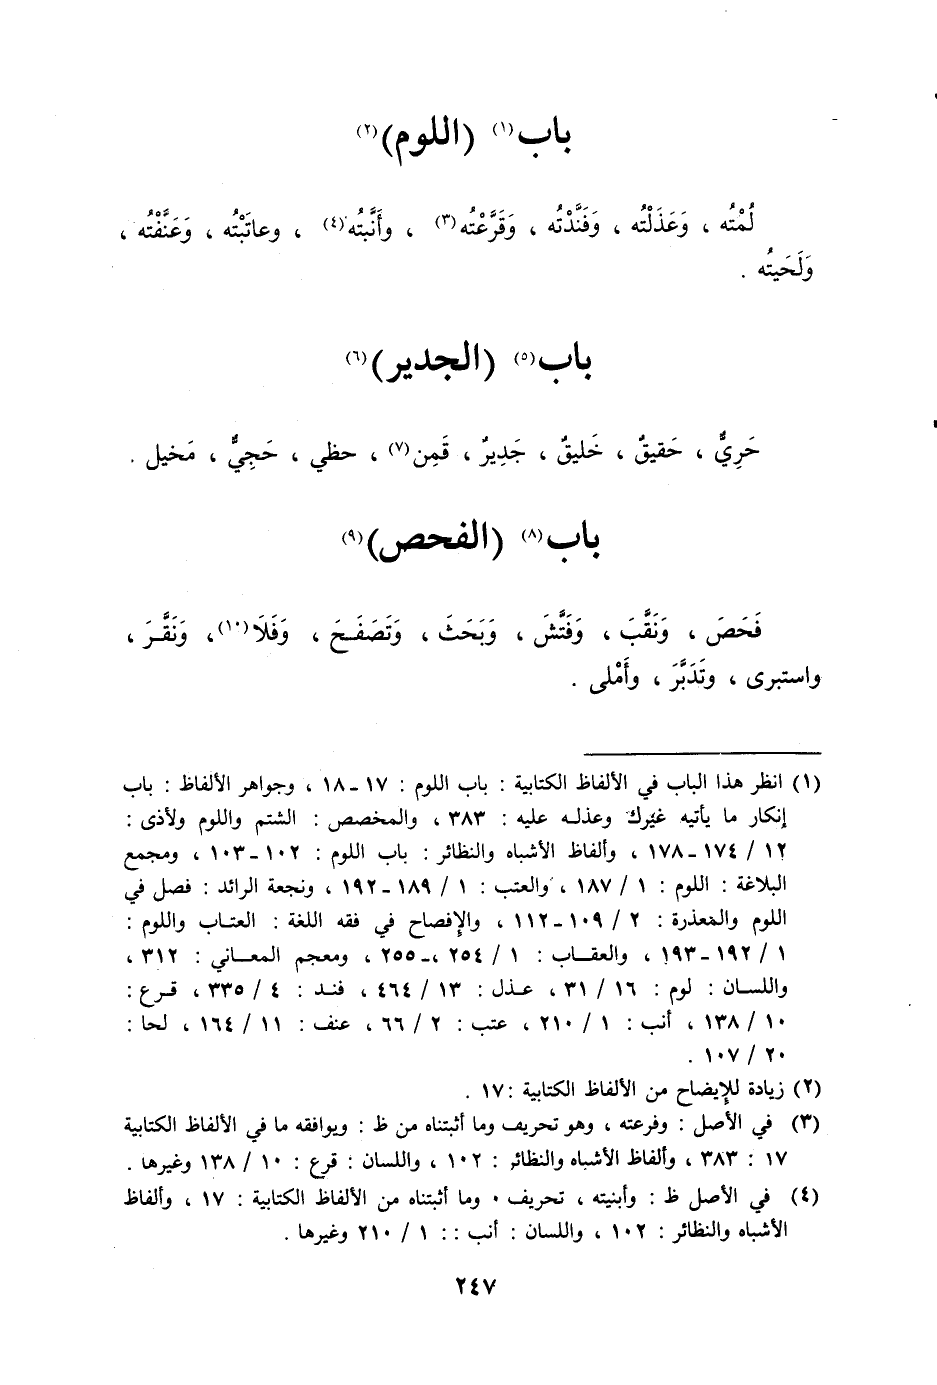 باب(١) (اللوم)(٢)
لُمْتُه ، وَعَذَلْتُه ، وَفَنَّدْتُه ، وَقَرَّعْتُه(٣) ، وأَنَّبتُه(٤) ، وعاتَبْتُه ، وَعَنَّفْتُه ،
وَلَحَيتُه .
باب(٥) (الجدير)(٦)
حَرِيٌّ ، حَقيقٌ ، خَليقٌ ، جَدِيرٌ ، قَمِن(٧) ، حظي ، حَجِيٌّ ، مَخيل .
باب(٨) (الفحص)(٩)
فَحَصَ ، وَنَقَّبَ ، وَفَتَّشَ ، وَبَحَثَ ، وَتَصَفَـحَ ، وَفَلَا(١٠)، وَنَقَّـرَ ،
واستبرى ، وتَدَبَّرَ ، وأَمْلى .
(١) انظر هذا الباب في الألفاظ الكتابية : باب اللوم : ١٧ـ١٨ ، وجواهر الألفاظ : باب
إنكار ما يأتيه غيرك وعذله عليه : ٣٨٣ ، والمخصص : الشتم واللوم ولأذى :
١٢ / ١٧٤ـ١٧٨ ، وألفاظ الأشباه والنظائر : باب اللوم : ١٠٢ـ١٠٣ ، ومجمع
البلاغة : اللوم : ١ / ١٨٧ ، والعتب : ١ / ١٨٩ـ١٩٢ ، ونجعة الرائد : فصل في
اللوم والمعذرة : ٢ / ١٠٩ـ١١٢ ، والإفصاح في فقه اللغة : العتاب واللوم :
١ / ١٩٢ـ١٩٣ ، والعقـاب : ١ / ٢٥٤ ،ـ٢٥٥ ، ومعجم المعـاني : ٣١٢ ،
واللسـان : لوم : ١٦ / ٣١ ، عـذل : ١٣ / ٤٦٤ ، فنـد : ٤ / ٣٣٥ ، قـرع :
١٠ / ١٣٨ ، أنب : ١ / ٢١٠ ، عتب : ٢ / ٦٦ ، عنف : ١١ / ١٦٤ ، لحا :
٢٠ / ١٠٧ .
(٢) زيادة للإيضاح من الألفاظ الكتابية :١٧ .
(٣) في الأصل : وفرعته ، وهو تحريف وما أثبتناه من ظ : ويوافقه ما في الألفاظ الكتابية
١٧ : ٣٨٣ ، وألفاظ الأشباه والنظائر : ١٠٢ ، واللسان : قرع : ١٠ / ١٣٨ وغيرها .
(٤) في الأصل ظ : وأبنيته ، تحريف ٠ وما أثبتناه من الألفاظ الكتابية : ١٧ ، وألفاظ
الأشباه والنظائر : ١٠٢ ، واللسان : أنب : : ١ / ٢١٠ وغيرها .
٢٤٧